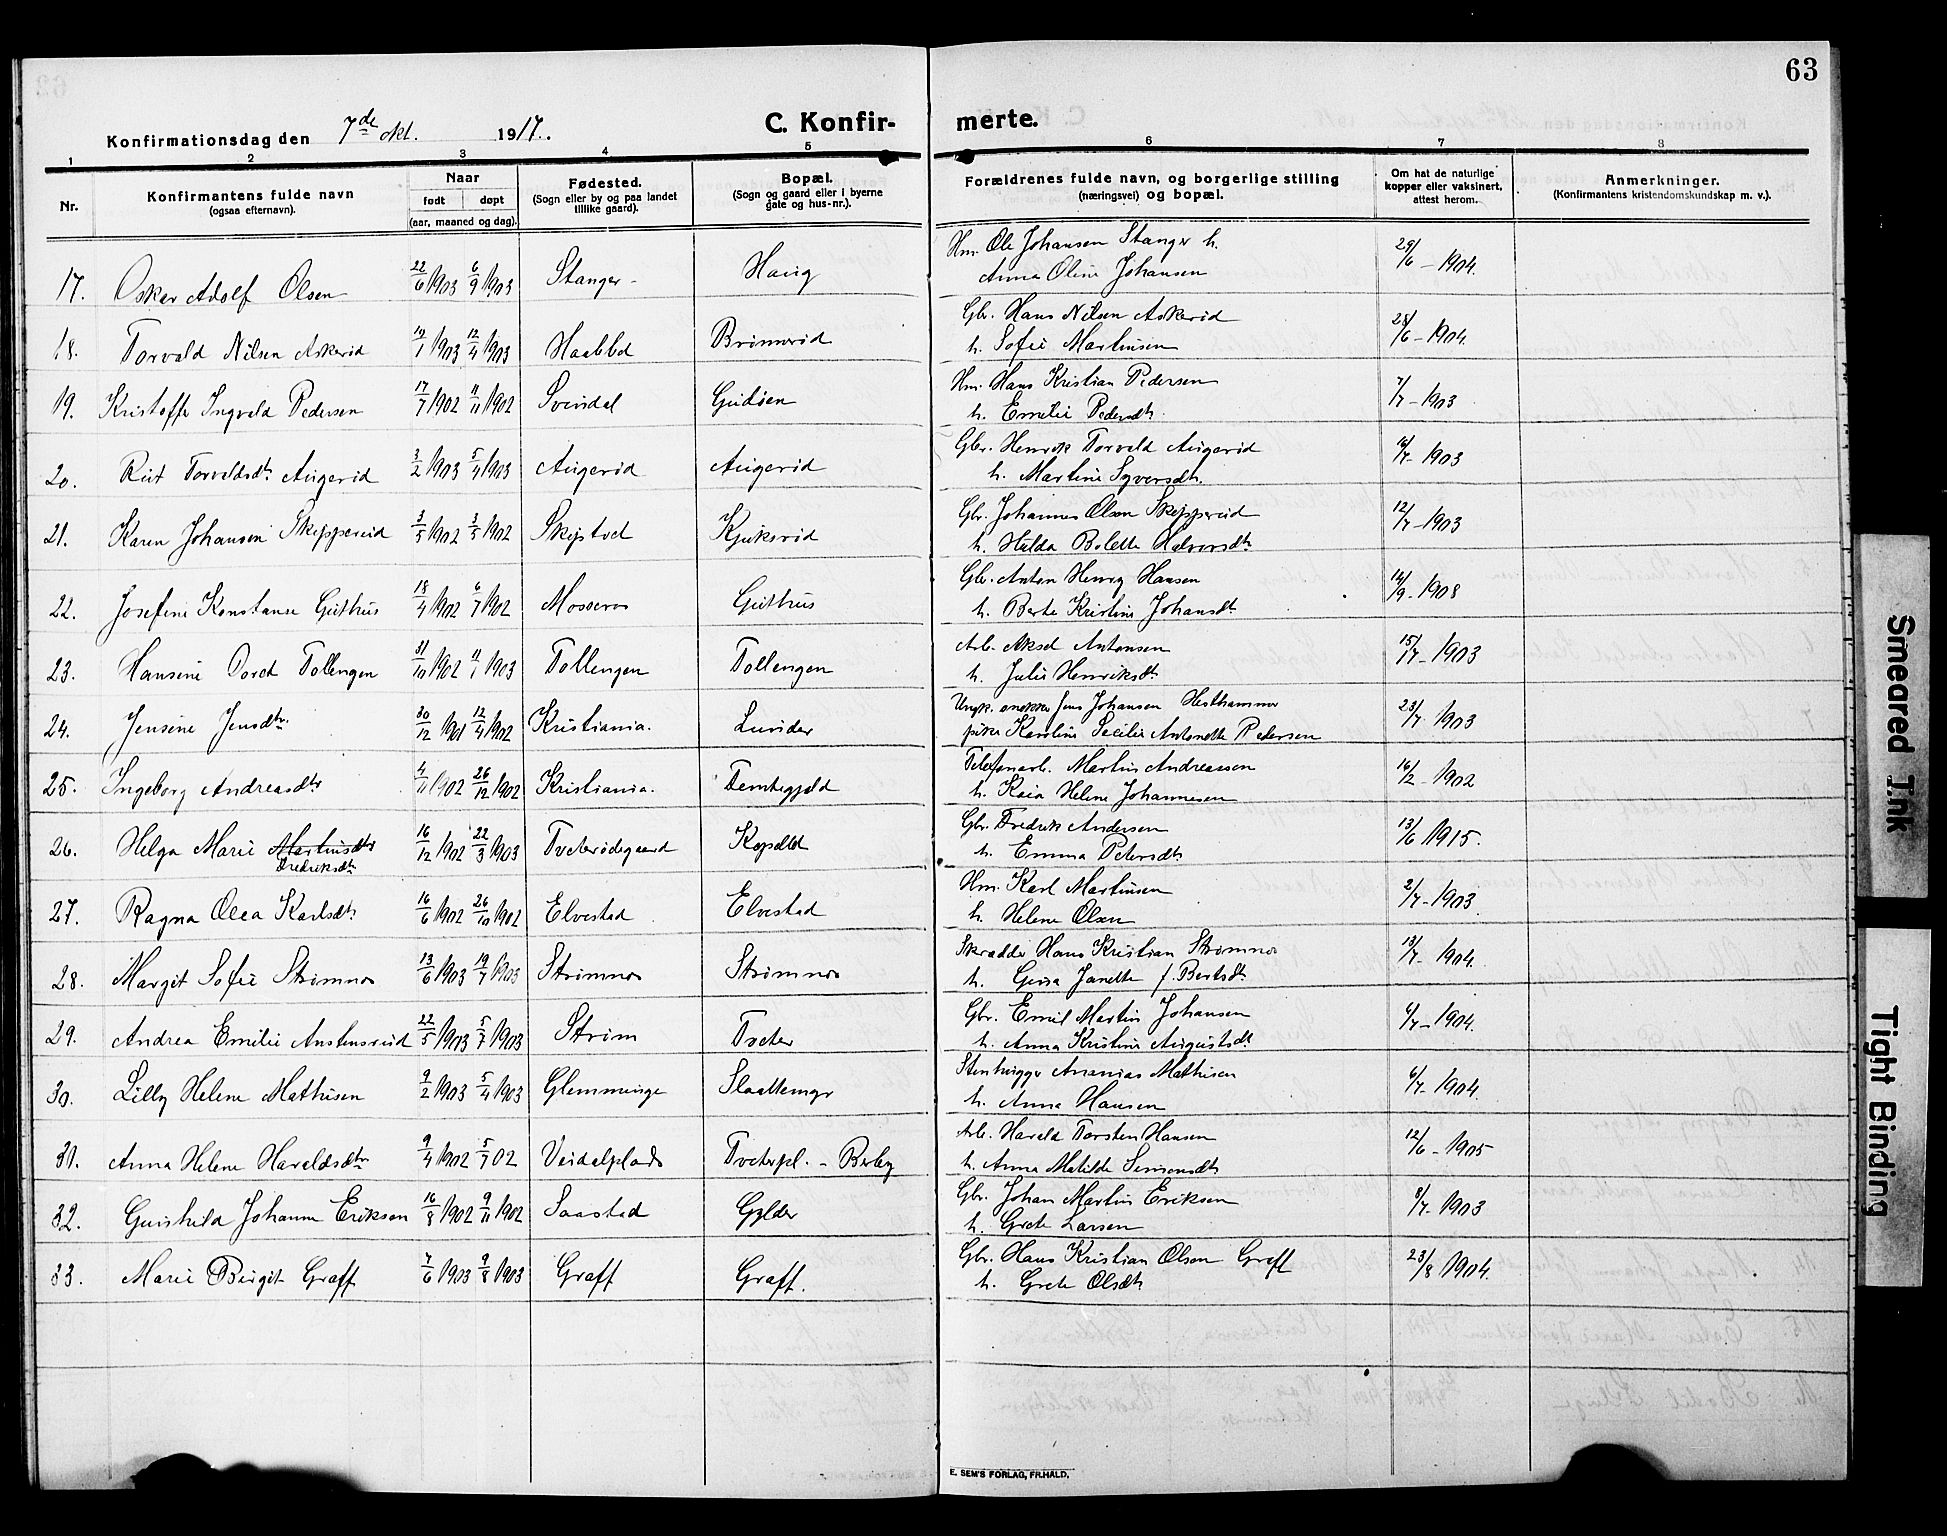 63
Konfirmationsdag den 7de okt. 1917.
C. Konfirmerte.
1 2 3 4 5 6 7 8
Nr.
Konfirmantens fulde navn
(ogsaa efternavn).
Naar
født døpt
(aar, maaned og dag).
Fødested.
(Sogn eller by og paa landet
tillike gaard).
Bopæl.
(Sogn og gaard eller i byerne
gate og hus-nr.).
Forældrenes fulde navn, og borgerlige stilling
(næringsvei) og bopæl.
Om hat de naturlige
kopper eller vaksinert,
attest herom.
Anmerkninger.
(Konfirmantens kristendomskundskap m. v.).
17. Oskar Adolf Olsen 22/6 1903 6/9 1903 Stanger Haug Hm. Ole Johansen Stanger h. 29/6 - 1904.
Anna Oline Johansen
18. Torvald Nilsen Askerød 19/1 1903 12/4 1903 Haabbol Brimerød Gbr. Hans Nilsen Askerød 28/6 - 1904.
h. Sofie Martinsen
19. Kristoffe Ingvald Pedersen 17/7 1902 11/11 1902 Svindal Gudøen Hm. Hans Kristian Pedersen 7/7 - 1903
h. Emilie Pedersdtr.
20. Rut Torvaldsdtr. Augerød 3/2 1903 5/4 1903 Augerød Augerød Gbr. Henrik Torvald Augerød 6/7 - 1903
h. Martine Syversdtr.
21. Karen Johansen Skippereid 3/5 1902 3/5 1902 Skiptvet Kjuksrød Gbr. Johannes Olsen Skippereid 12/7 - 1903
h. Hulda Bolette Halvorsdtr.
22. Josefine Konstanse Guthus 18/4 1902 6/7 1902 Mosseros Guthus Gbr. Anton Henry Hansen 14/9 - 1908
h. Berte Kristine Johansdtr.
23. Hansine Doret Tollengen 31/10 1902 11/1 1903 Tollengen Tollengen Arb. Aksel Antonsen 15/7 - 1903
h. Julie Henriksdtr.
24. Jensine Jensdtr. 30/12 1901 12/4 1902 Kristiania. Lunder Ungk. snekker Jens Johansen Hesthammer 23/7 - 1903
pike Karoline Secilie Antonette Pedersen
25. Ingeborg Andreasdtr. 4/11 1902 26/12 1902 Kristiania. Temtegjeld Telefonarb. Martin Andreassen 16/2 - 1902
h. Kaia Helene Johannesen
26. Helga Marie Martinsdtr. 16/12 1902 22/3 1903 Tveterødegaard Kopsland Gbr. Fredrik Andersen 13/6 1915.
Fredriksdtr.
h. Emma Petersdtr.
27. Ragna Olea Karlsdtr. 16/6 1902 26/10 1902 Elvestad Elvestad Hm. Karl Martinsen 2/7 - 1903
h. Helene Olsen
28. Margit Sofie Strømnes 13/6 1903 19/7 1903 Strømnes Strømnes Skrædder Hans Kristian Strømnes 13/7 - 1904.
h. Gina Janette f. Bertsdtr.
29. Andrea Emilie Anstensrud 22/5 1903 5/7 1903 Strøm Tveter Gbr. Emil Martin Johansen 6/7 - 1904.
h. Anna Kristine Augustsdtr.
30. Lilly Helene Mathisen 9/2 1903 5/4 1903 Glemminge Slaattemyr Stenhugger Ananias Mathisen 6/7 - 1904.
h. Anna Hansen
31. Anna Helene Haraldsdtr. 9/4 1902 5/7 02 Veidalplads Tveterpl. - Berby Arb. Harald Torsten Hansen 12/6 - 1905
h. Anna Matilde Simensdtr.
32. Gunhild Johanne Eriksen 16/8 1902 9/11 1902 Saastad Gylder Gbr. Johan Martin Eriksen 8/7 - 1903
h. Grete Larsen
33. Marie Birgit Graff 7/6 1903 9/8 1903 Graff Graff. Gbr. Hans Kristian Olsen Graff 23/8 1904.
h. Grete Olsdtr.
E. SEM'S FORLAG, FR.HALD.
Smeared Ink
Tight Binding